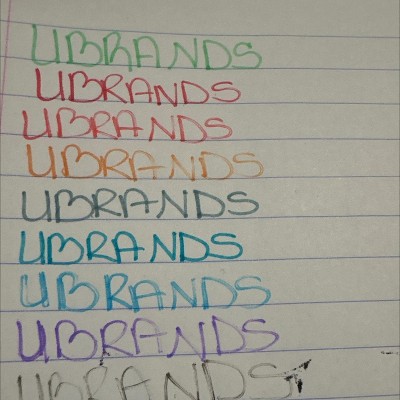 UBRANDS
UBRANDS
UBRANDS
UBRANDS
UBRANDS
UBRANDS
UBRANDS
UBRANDS
UBRANDS